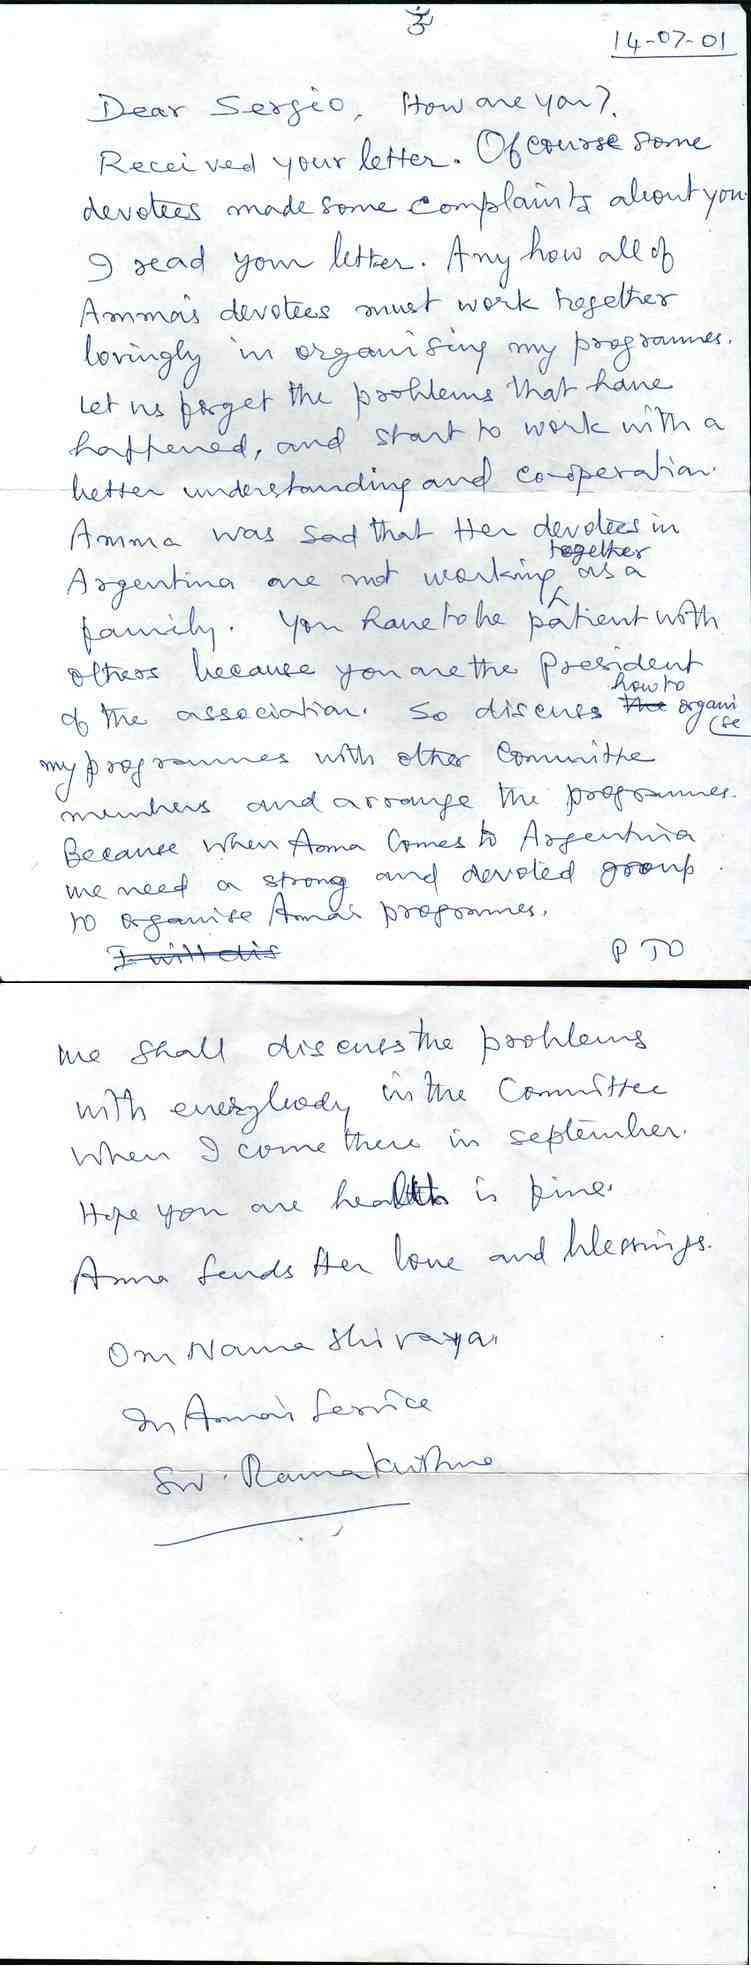 ॐ
14-07-01
Dear Sergio, How are you?.
Received your letter. Of course some
devotees made some complaints about you
I read your letter. Any how all of
Amma's devotees must work together
lovingly in organising my programmes.
Let us forget the problems that have
happened, and start to work with a
better understanding and co-operation.
Amma was sad that Her devotees in
together
Argentina are not working as a
family. You have to be patient with
others because you are the President
how to
of the association. So discuss the organi
se
my programmes with other Committee
members and arrange the programmes.
Because when Amma Comes to Argentina
we need a strong and devoted group.
to organise Amma's programmes.
I will dis
P T O
we shall discuss the problems
with everybody in the Committee
When I come there in september.
Hope you are health is fine.
Amma sends Her love and blessings.
Om Nama Shivaya.
In Amma's Service
Sw. Ramakrishna